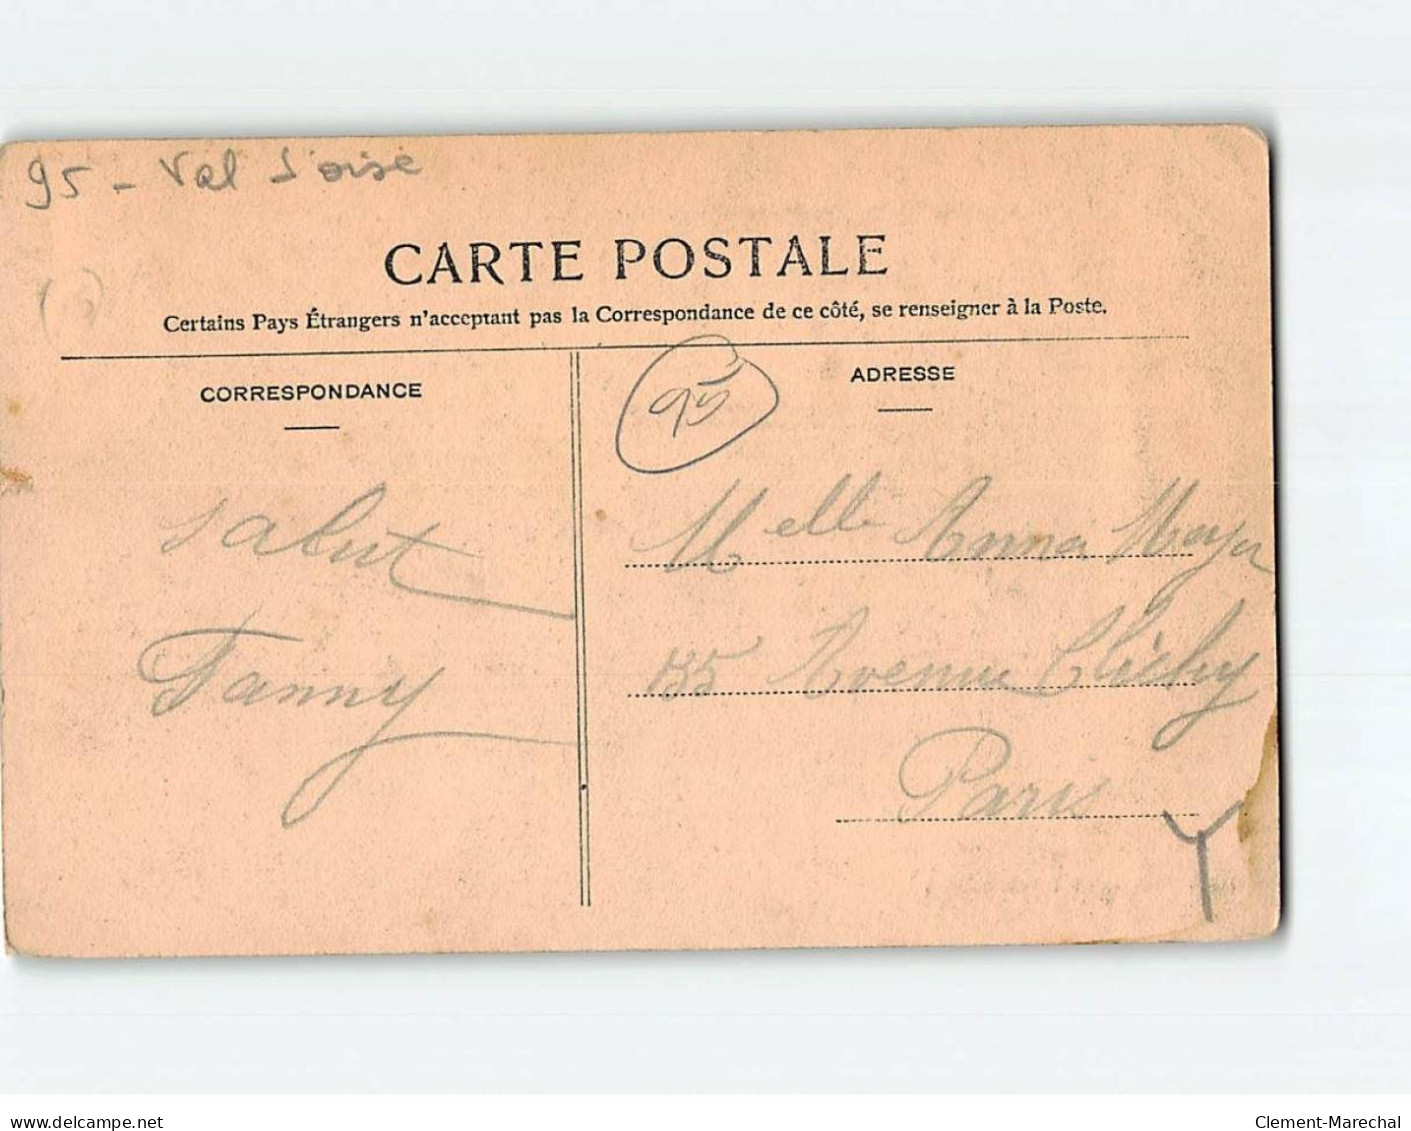 95 - Val d'oise
CARTE POSTALE
Certains Pays Étrangers n'acceptant pas la Correspondance de ce côté, se renseigner à la Poste.
CORRESPONDANCE
ADRESSE
95
salut
Fanny
Melle Anna Mayer
135 Avenue Clichy
Paris
www.delcampe.net
Clement-Marechal